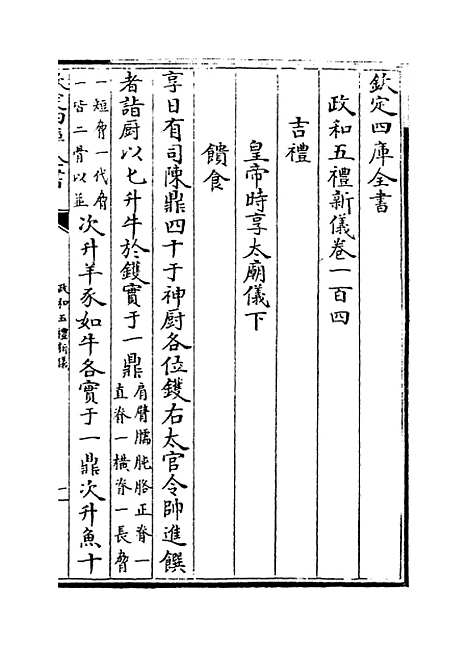 欽定四庫全書
政和五禮新儀卷一百四
吉禮
皇帝時享太廟儀下
饋食
享日有司陳鼎四十于神厨各位鑊右太官令帥進饌
者詣厨以匕升牛於鑊實于一鼎肩臂臑肫胳正脊一直脊一橫脊一長脅
一短脅一代脅一皆二骨以並次升羊豕如牛各實于一鼎次升魚十
政和五禮新儀
一